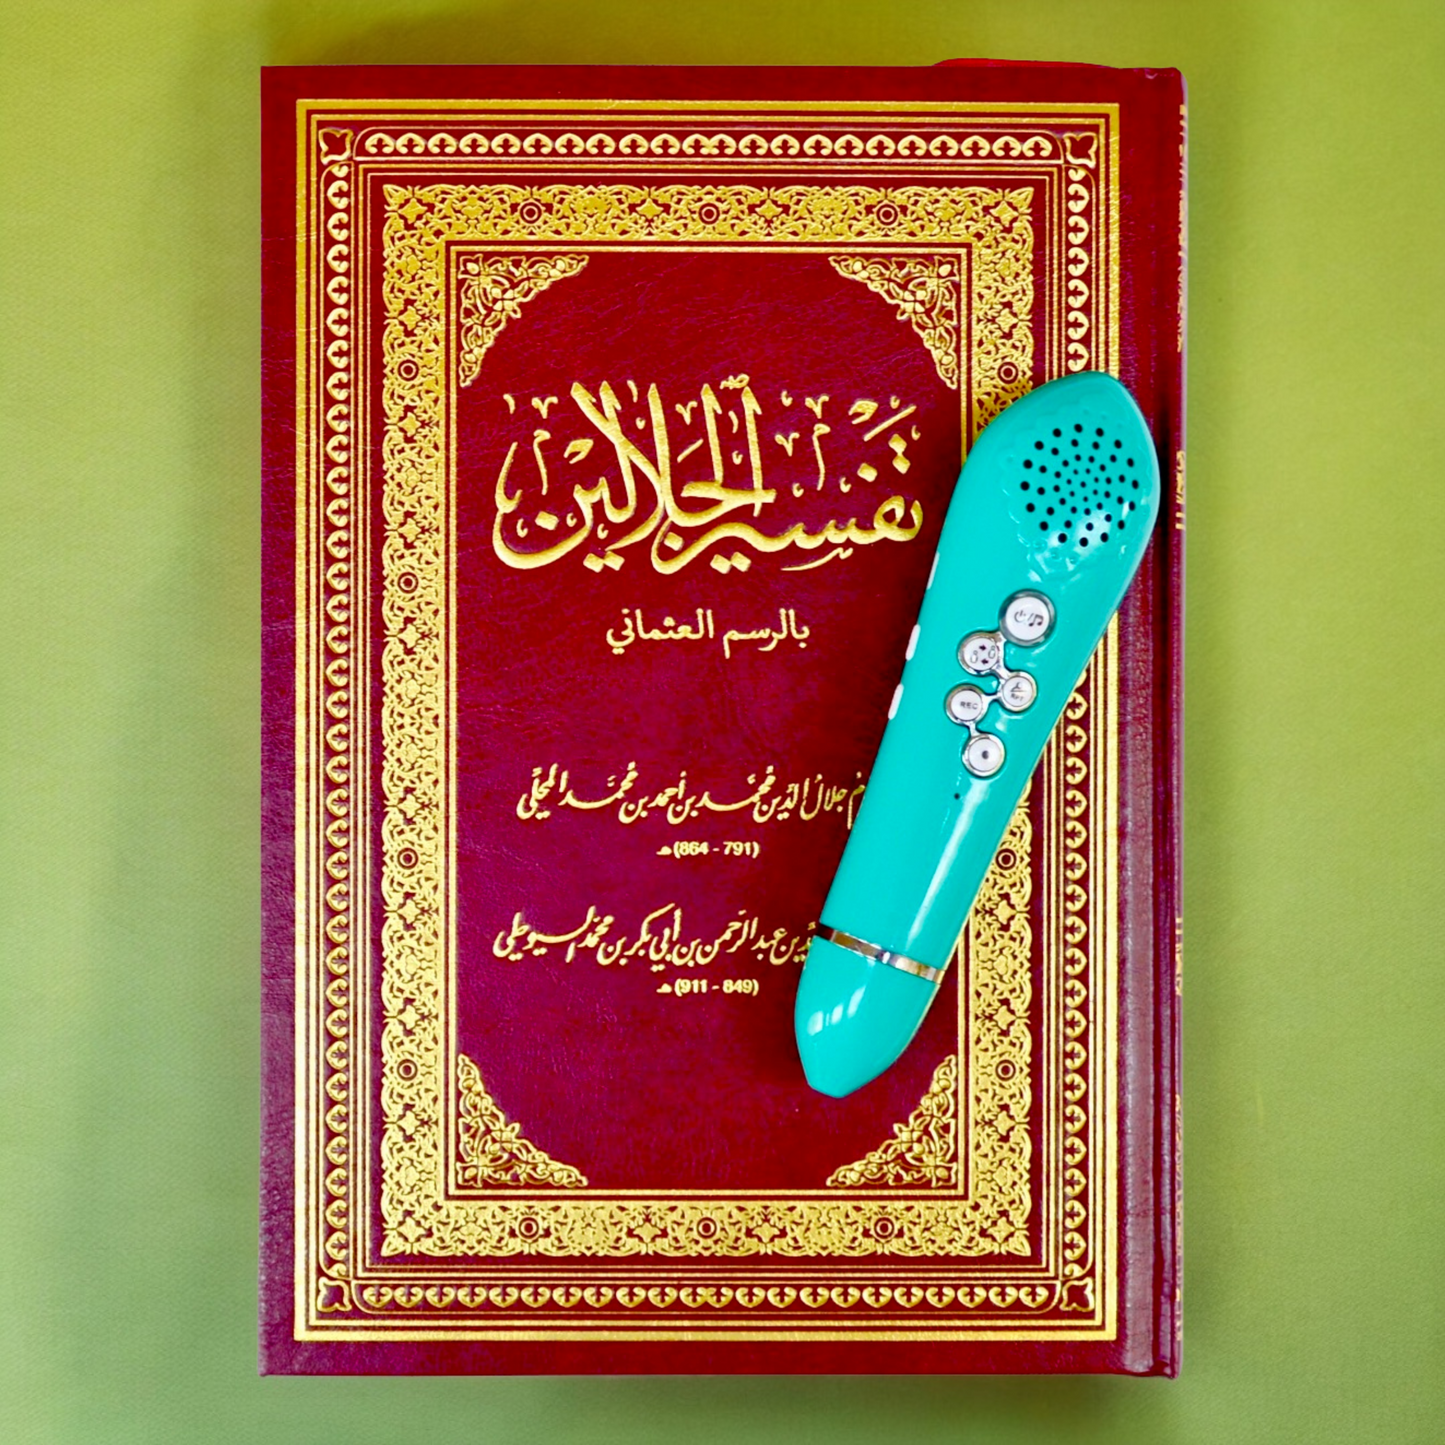 تفسير الجلالين
بالرسم العثماني
جلال الدّين محمّد بن أحمد بن محمّد المحلّي
(791 - 864) هـ
عبد الرّحمن بن أبي بكر بن محمّد السيوطي
(849 - 911) هـ
REC